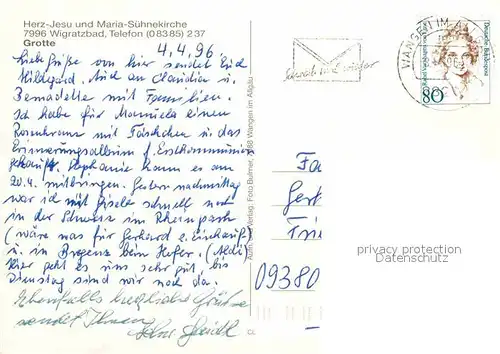 Herz-Jesu und Maria-Sühnekirche
7996 Wigratzbad, Telefon (08385) 237
Grotte
4.4.96
Liebe Grüße von hier sendet Euch
Hildgard. Auch an Claudia u.
Bernadette mit Familien.
Ich habe für Manuela einen
Rosenkranz mit Täschchen u. das
Erinnerungsalbum f. Erstkommunion
gekauft. Stephanie kann es am
20.4. mitbringen. Gestern nachmittag
war ich mit Gisela schnell noch
in der Schweiz im Rheinpark
(wäre was für Gerhard z. Einkauf)
u. in Bregenz beim Hofer. (Aldi)
Hier geht es uns sehr gut, bis
Dienstag sind wir noch da.
Ebenfalls herzliche Grüße
sendet Ihnen
Aufn. und Verlag: Foto Bulmer, 7988 Wangen im Allgäu
WANGEN IM
Deutsche Bundespost
80
09380
privacy protection
Datenschutz